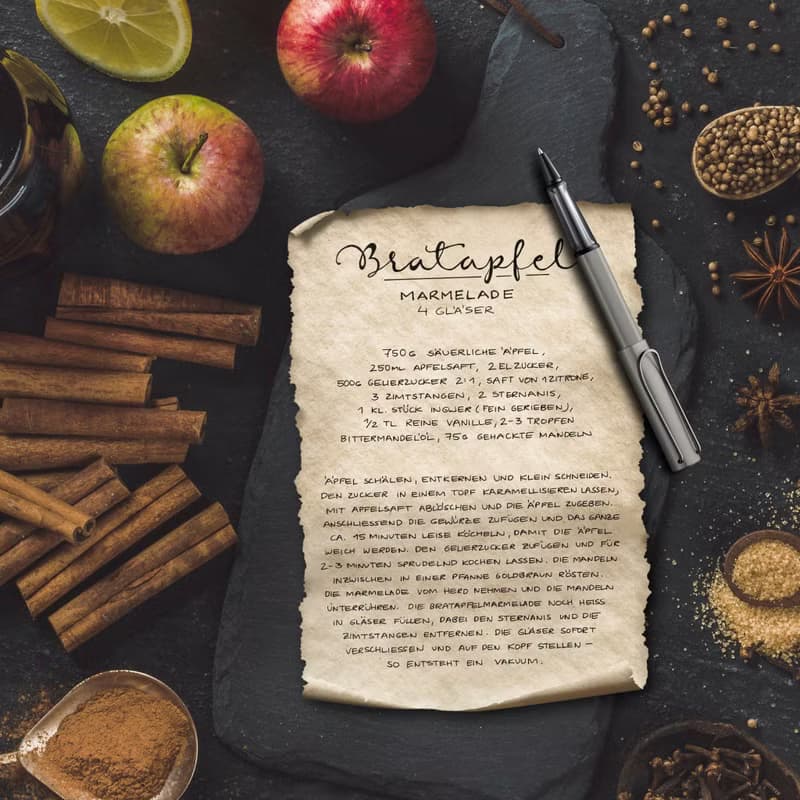 Bratapfel
MARMELADE
4 GLÄSER
750G SÄUERLICHE ÄPFEL,
250ML APFELSAFT, 2 ELZUCKER,
500G GELIERZUCKER 2:1, SAFT VON 1ZITRONE,
3 ZIMTSTANGEN, 2 STERNANIS,
1 KL. STÜCK INGWER (FEIN GERIEBEN),
1/2 TL REINE VANILLE, 2-3 TROPFEN
BITTERMANDELÖL, 75G GEHACKTE MANDELN
ÄPFEL SCHÄLEN, ENTKERNEN UND KLEIN SCHNEIDEN.
DEN ZUCKER IN EINEM TOPF KARAMELLISIEREN LASSEN,
MIT APFELSAFT ABLÖSCHEN UND DIE ÄPFEL ZUGEBEN.
ANSCHLIESSEND DIE GEWÜRZE ZUFÜGEN UND DAS GANZE
CA. 15 MINUTEN LEISE KÖCHELN, DAMIT DIE ÄPFEL
WEICH WERDEN. DEN GELIERZUCKER ZUFÜGEN UND FÜR
2-3 MINUTEN SPRUDELND KOCHEN LASSEN. DIE MANDELN
INZWISCHEN IN EINER PFANNE GOLDBRAUN RÖSTEN.
DIE MARMELADE VOM HERD NEHMEN UND DIE MANDELN
UNTERRÜHREN. DIE BRATAPFELMARMELADE NOCH HEISS
IN GLÄSER FÜLLEN, DABEI DEN STERNANIS UND DIE
ZIMTSTANGEN ENTFERNEN. DIE GLÄSER SOFORT
VERSCHLIESSEN UND AUF DEN KOPF STELLEN –
SO ENTSTEHT EIN VAKUUM.